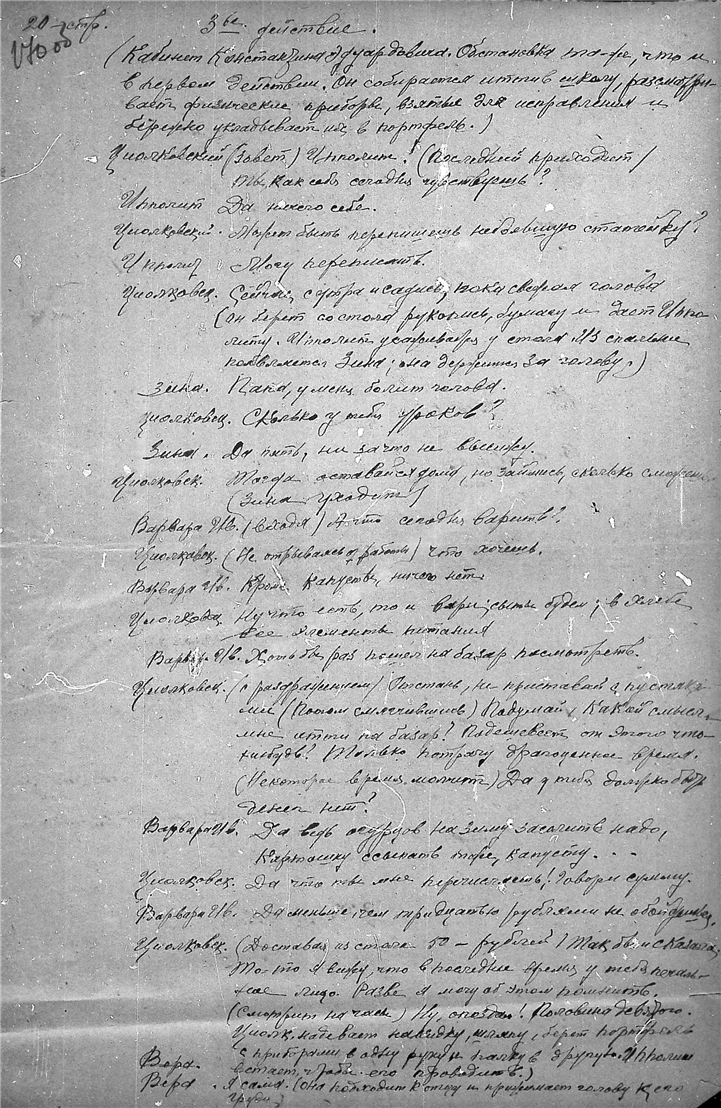 20 стр.
3ье действие.
(Кабинет Константина Эдуардовича. Обстановка та-же, что и
в первом действии. Он собирается итти в школу, разсматри-
вает физические приборы, взятые для исправления и
бережно укладывает их в портфель.)
Циолковский (Зовет) Ипполит! (Последний приходит)
Ты как себя сегодня чувствуешь?
Ипполит Да ничего себе.
Циолковский. Может быть перепишешь небольшую статейку?
Ипполит Могу переписать.
Циолковск. Сейчас, с утра и садись, пока свежая голова
(он берет со стола рукопись, бумагу и дает Иппо-
литу. Ипполит усаживается у стола. Из спальни
появляется Зина; она держится за голову.)
Зина. Папа, у меня болит голова.
Циолковск. Сколько у тебя уроков?
Зина. Да пять, ни за что не высижу.
Циолковск. Тогда оставайся дома, но займись, сколько сможешь
(Зина уходит)
Варвара Ив. (входя) А что сегодня варить?
Циолковск. (Не отрываясь от работы) что хочешь.
Варвара Ив. Кроме капусты, ничего нет.
Циолковск. Ну что есть, то и вари; сыты будем; в хлебе
все элементы питания
Варвар. Ив. Хоть бы раз пошел на базар посмотреть.
Циолковск. (с раздражением) Отстань, не приставай с пустяка-
ми (Потом смягчившись) Подумай, какой смысл
мне итти на базар? Подешевеет от этого что-
нибудь? Только потрачу драгоценное время.
(Некоторое время молчит) Да у тебя должно быть
денег нет?
Варвара Ив. Да ведь огурцов на зиму засолить надо,
Картошку ссыпать тоже, капусту. . .
Циолковск. Да что ты мне перечисляешь! Говори сумму.
Варвара Ив. Да меньше чем тридцатью рублями не обойдешься.
Циолковск. (Доставая из стола 50 – рублей) Так бы и сказала,
То-то я вижу, что в последнее время у тебя печаль-
ное лицо. Разве я могу об этом помнить.
(Смотрит на часы) Ну, опоздал. Половина девятого.
Циолк. надевает накидку, шляпу, берет портфель
с приборами в одну руку и палку в другую. Ипполит
встает, чтобы его проводить.)
Вера.
Вера. Я сама. (она подходит к отцу и прижимает голову к его
груди)